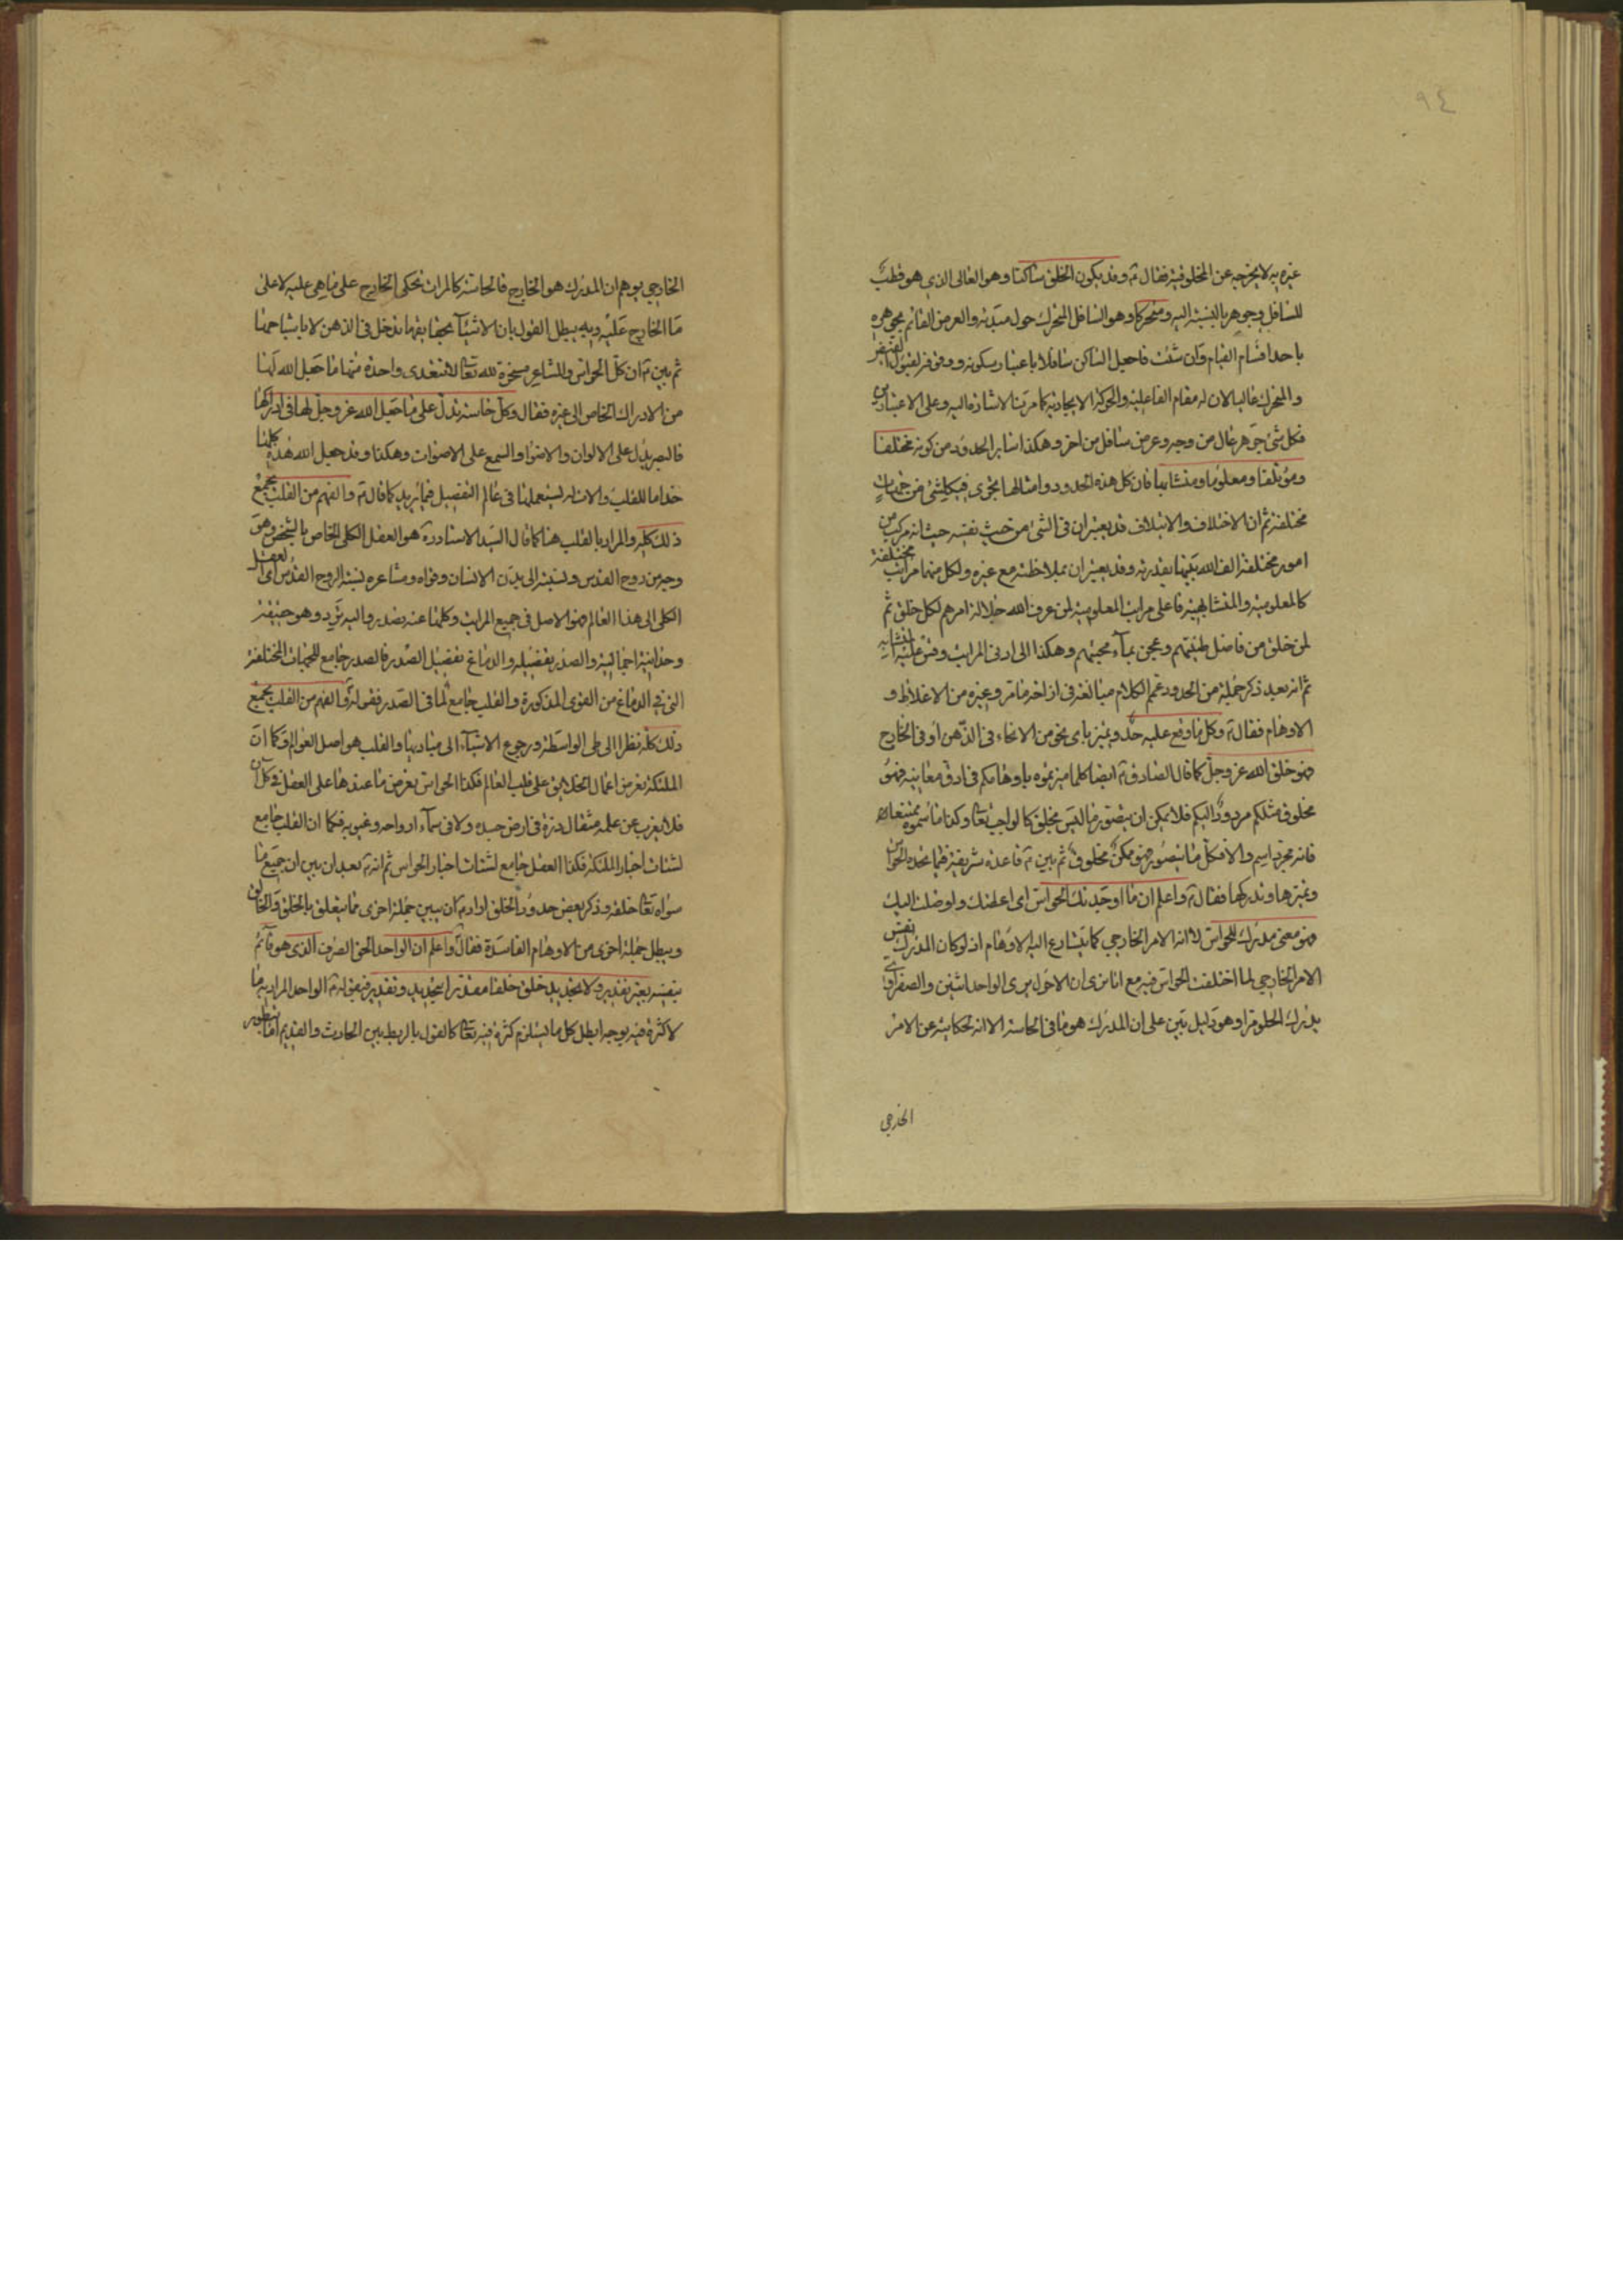 ٩٤
غيره به لا يخرجه عن المخلوقية فقال ع وقد يكون الخلق ساكنا وهو العالي الذي هو قطب
للسافل وجوهر بالنسبة اليه ومتحركا وهو السافل المتحرك حول مبدئه والعرض القائم بجوهره
باحد اقسام القيام وان شئت فاجعل الساكن سافلا باعتبار سكونه ووقوفه لقبول الفيض
والمتحرك عاليا لان له مقام الفاعلية والحركة الايجادية كما مرتنا الاشارة اليه وعلى الاعتبارين
فكل شئ جوهر عال من وجه وعرض سافل من اخر وهكذا سائر الحدود من كونه مختلفا
ومؤتلفا ومعلوما ومتشابها فان كل هذه الحدود وامثالها يجرى في كل شئ من جهات
مختلفة ثم ان الاختلاف والايتلاف قد يعتبران في الشئ من حيث نفسه حيث انه مركب من
امور مختلفة الف الله بينها بقدرته وقد يعتبران بملاحظته مع غيره ولكل منهما مراتب مختلفة
كالمعلومية والمتشابهية فاعلى مراتب المعلومية لمن عرف الله جلالة امرهم لكل خلق ثم
لمن خلق من فاضل طينتهم وعجن بماء محبتهم وهكذا الى ادنى المراتب وقس عليه المتشابه
ثم انه بعد ذكر جملة من الحدود عمم الكلام مبالغة في ازاحة ما مر وغيره من الاغلاط و
الاوهام فقال ع وكل ما وقع عليه حد ويميز باى نحو من الانحاء في الذهن او في الخارج
فهو خلق الله عز وجل كما قال الصادق ع ايضا كلما ميزتموه باوهامكم في ادق معانيه فهو
مخلوق مثلكم مردود اليكم فلا يمكن ان يتصور ما ليس بخلق كالواجب تعالى وكذا ما سموه بممتنعات
فانه مجرد اسم والا فكل ما يتصور فهو ممكن مخلوق ثم بين ع قاعدة شريفة فيما يحده الحواس
ويميزها وتدركها فقال ع واعلم ان ما اوجدتك الحواس اى اعلمتك واوصلت اليك
فهو معنى مدرك للحواس لا انه الامر الخارجي كما يتسارع اليه الاوهام اذ لو كان المدرك نفس
الامر الخارجي لما اختلفت الحواس فيه مع انا نرى ان الاحول يرى الواحد اثنين والصفراوى
يدرك الحلو مرا وهو دليل بين على ان المدرك هو ما في الحاسة الا انه لحكايته عن الامر
الخارجي
الخارجي يوهم ان المدرك هو الخارج فالحاسة كالمرات تحكى الخارج على ما هي عليه لا على
ما الخارج عليه وبه يبطل القول بان الاشياء بحقايقها تدخل في الذهن لا باشباحها
ثم بين ع ان كل الحواس والمشاعر مسخرة لله تعالى لا تتعدى واحدة منها ما جعل الله لها
من الادراك الخاص الى غيره فقال وكل حاسة تدل على ما جعل الله عز وجل لها في ادراكها
فالبصر يدل على الالوان والاضواء والسمع على الاصوات وهكذا وقد جعل الله هذه كلها
خداما للقلب والات له يستعملها في عالم التفصيل فيما يريد كما قال ع والفهم من القلب بجميع
ذلك كله والمراد بالقلب هنا كما قال السيد الاستاد ره هو العقل الكلى الخاص بالشخص وهو
وجه من روح القدس ونسبته الى بدن الانسان وقواه ومشاعره نسبة الروح القدس اى العقل
الكلى الى هذا العالم فهو الاصل في جميع المراتب وكلها عنه يصدر واليه يرد وهو حقيقة
وحدانية اجمالية والصدر تفصيله والدماغ تفصيل الصدر فالصدر جامع للجهات المختلفة
التي في الدماغ من القوى المذكورة والقلب جامع لما في الصدر فقوله ع والفهم من القلب بجميع
ذلك كله نظرا الى طى الواسطة ورجوع الاشياء الى مباديها والقلب هو اصل العوالم وكما ان
الملئكة تعرض اعمال الخلايق على قلب العالم فكذا الحواس تعرض ما عندها على العقل في كل ان
فلا يعزب عن علمه مثقال ذرة في ارض جسده ولا في سماء ارواحه وغيوبه فكما ان القلب جامع
لشتات اخبار الملئكة فكذا العقل جامع لشتات اخبار الحواس ثم انه ع بعد ان بين ان جميع ما
سواه تعالى خلقه وذكر بعض حدود الخلق اراد ع ان يبين جملة اخرى مما يتعلق بالخلق والخالق
ويبطل جملة اخرى من الاوهام الفاسدة فقال ع واعلم ان الواحد الحق الصرف الذى هو قائم
بنفسه بغير تقدير ولا تحديد خلق خلقا مقدرا بتحديد وتقدير فبقوله ع الواحد المراد به ما
لا كثرة فيه بوجه ابطل كل ما يستلزم كثرة فيه تعالى كالقول بالربط بين الحادث والقديم